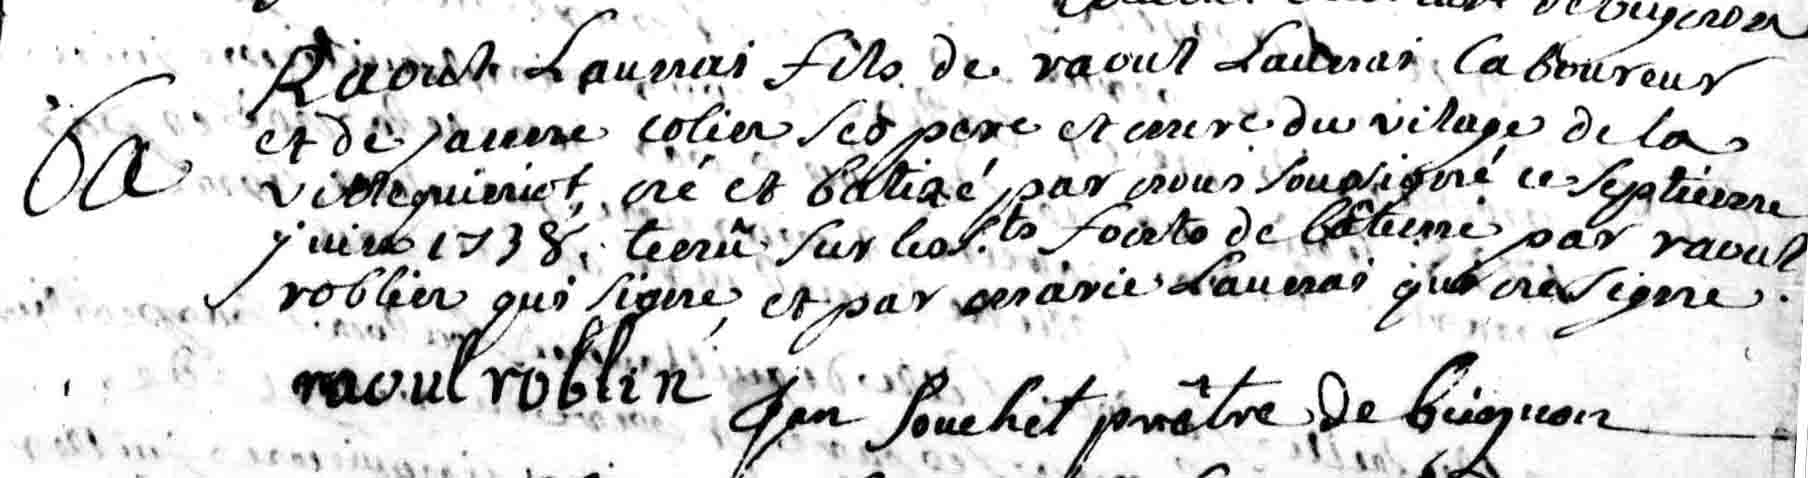 de bugnon
Raoul Launai fils de raoul Launai laboureur
et de janne colin ses pere et mere du vilage de la
ville quiniot, né et batizé par nous sousigné ce septieme
juin 1738, tenû sur les s.ts fonts de bâteme par raoul
roblin qui signe, et par marie Launai qui ne signe.
ba
raoul roblin
Jan Souchet prêtre de bugnon